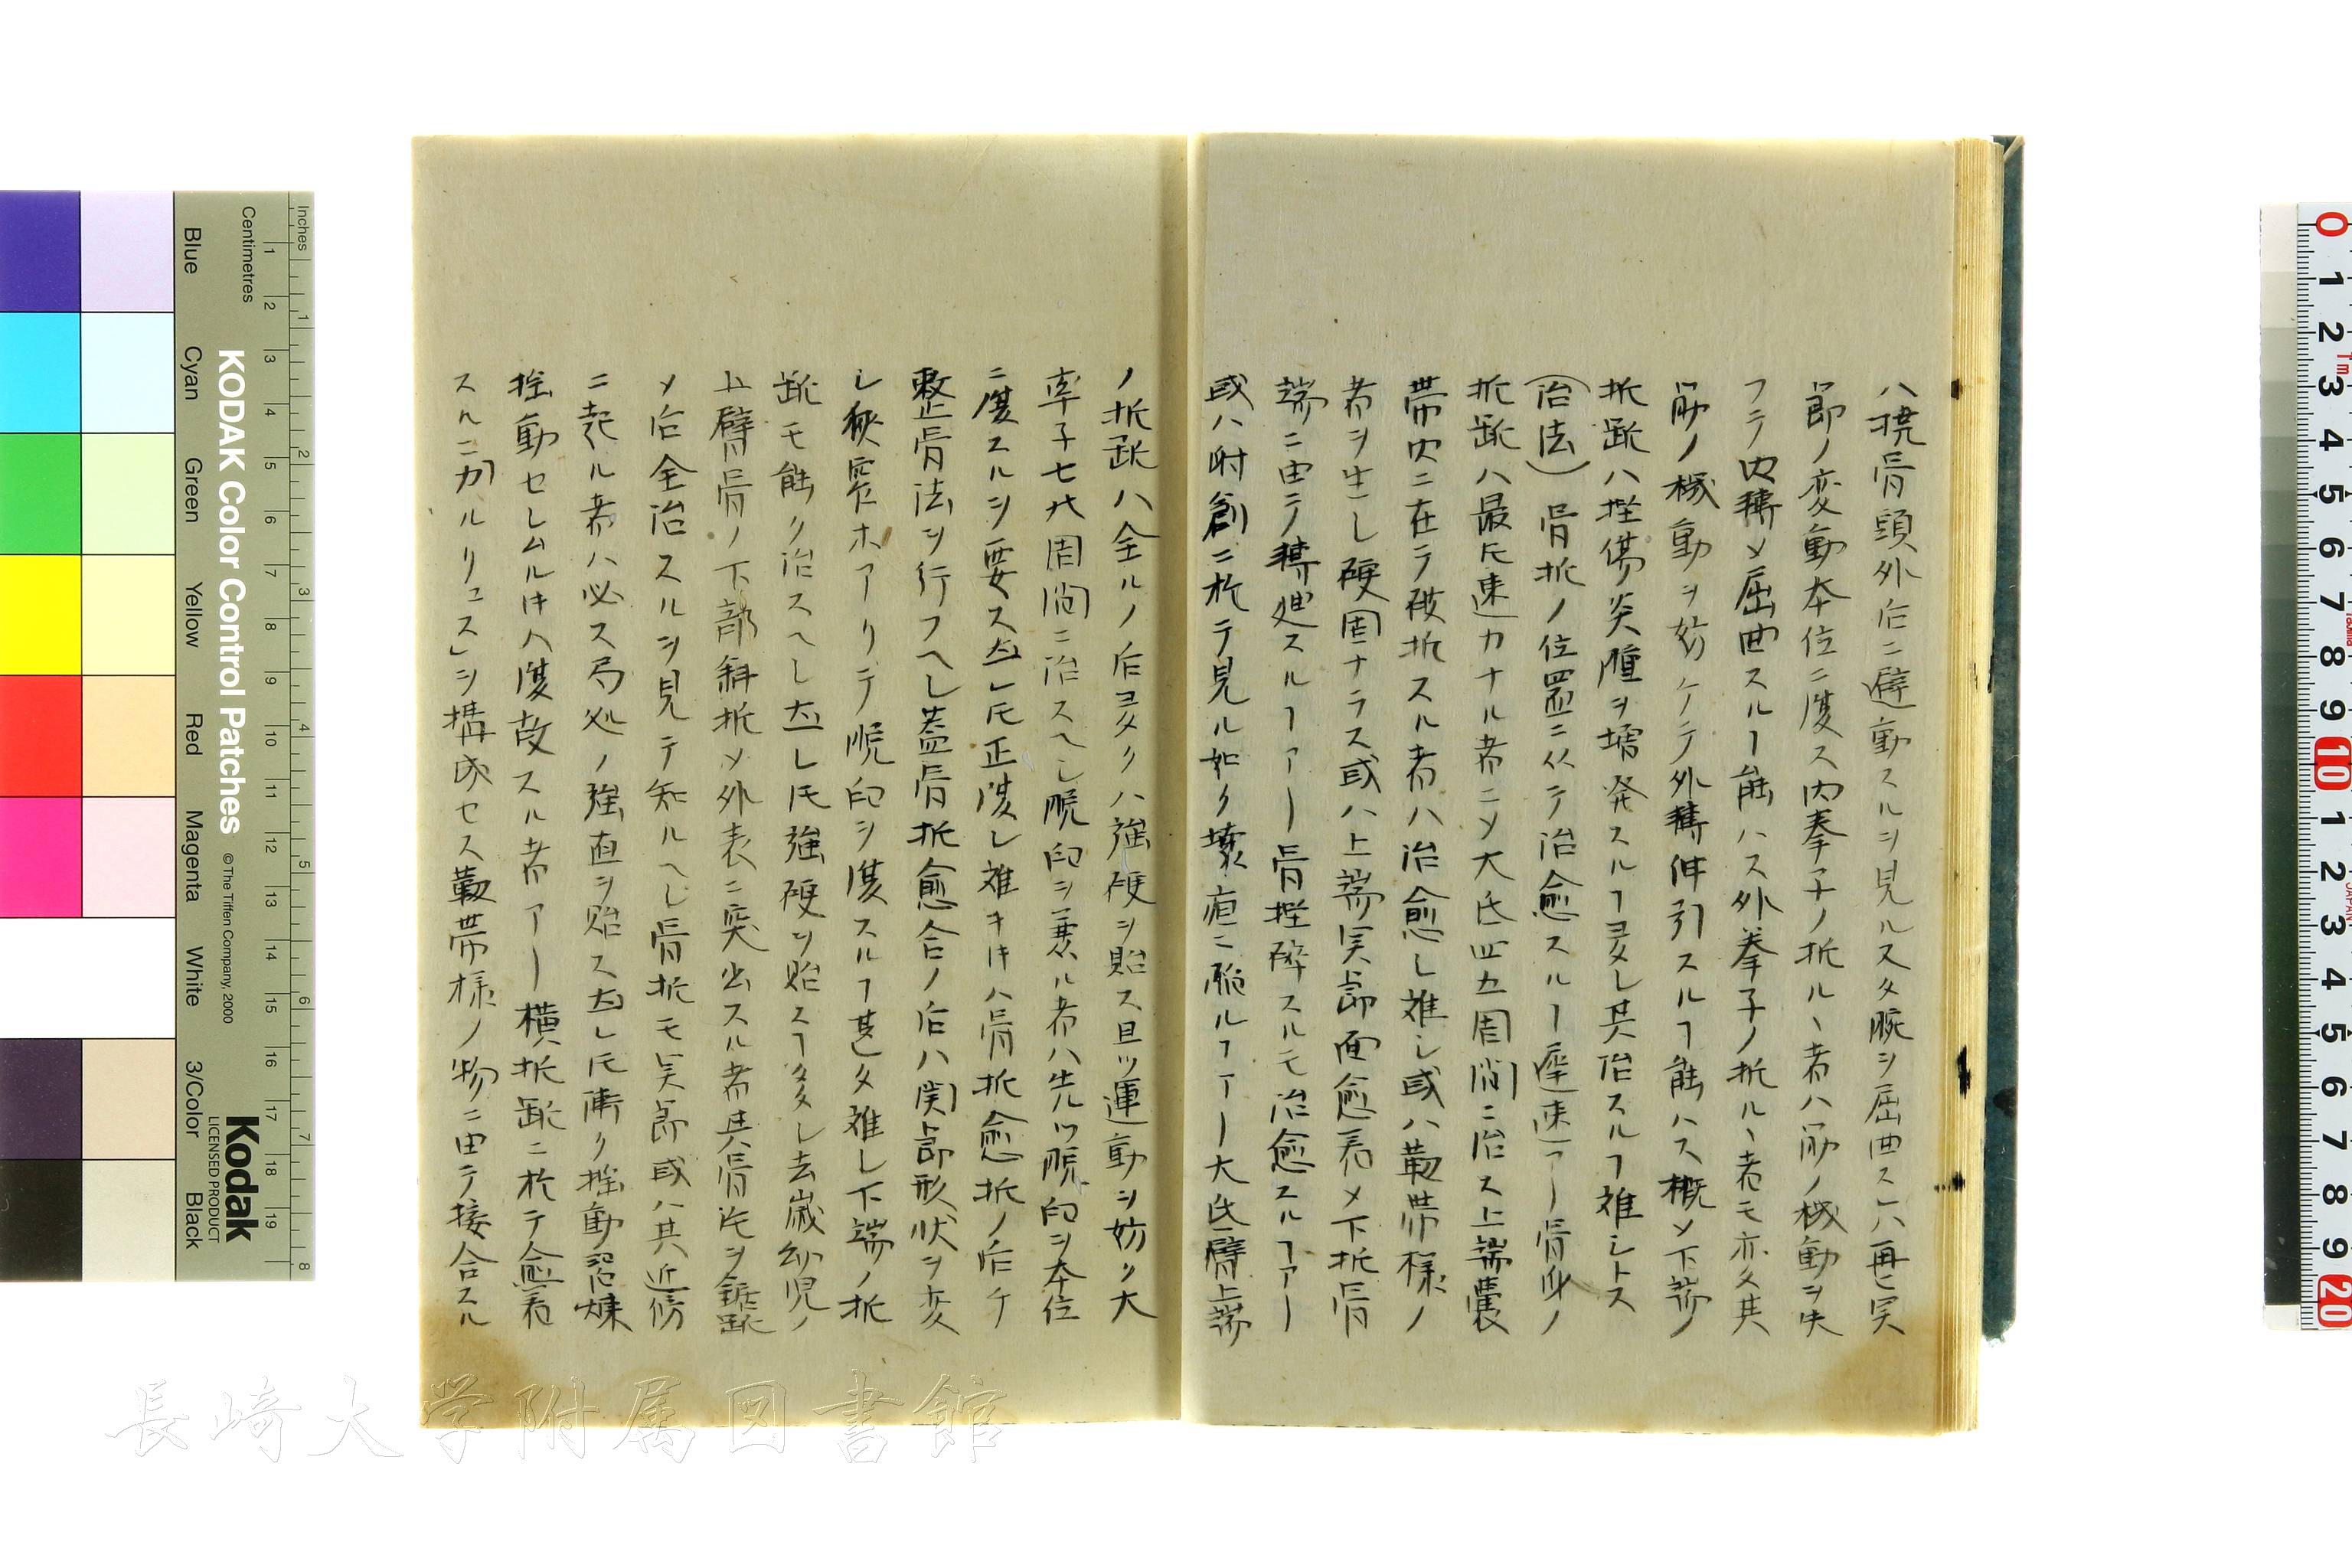 ハ撓骨頭外后ニ避動スルヲ見ル又タ腕ヲ屈曲スレハ再ヒ関
節ノ変動本位ニ復ス内拳子ノ折ルヽ者ハ筋ノ機動ヲ失
フテ内転シ屈曲スルヿ能ハス外拳子ノ折ルヽ者モ亦タ其
筋ノ機動ヲ妨ケテ外転伸引スルヿ能ハス概メ下端ノ
折跐ハ挫傷炎腫ヲ増発スルヿ多シ其治スルヿ難シトス
(治法)骨折ノ位置ニ从テ治愈スルヿ遅速アリ骨身ノ
折跐ハ最モ速カナル者ニメ大氐四五周間ニ治ス上端嚢
帯内ニ在テ破折スル者ハ治愈シ難シ或ハ靱帯様ノ
者ヲ生シ硬固ナラス或ハ上端関節面愈着メ下折骨
端ニ由テ転処スルヿアリ骨挫砕スルモ治愈スルヿアリ
或ハ射創ニ於テ見ル如ク壊疽ニ陥ルヿアリ大氐臂上端
ノ折跐ハ全ルノ后多クハ強硬ヲ貽ス且ツ運動ヲ妨ク大
率子七八周間ニ治スヘシ脱臼ヲ兼ル者ハ先ツ脱臼ヲ本位
ニ復スルヲ要ス然レ𪜈正復シ難キ𪜈ハ骨折愈折ノ后チ
整骨法ヲ行フヘシ蓋骨折愈合ノ后ハ関節形状ヲ変
シ狭窄ホアリテ脱臼ヲ復スルヿ甚タ難シ下端ノ折
跐モ能ク治スヘシ然レ𪜈強硬ヲ貽スヿ多シ去歳幼児ノ
上臂骨ノ下部斜折メ外表ニ突出スル者其骨片ヲ鋸断
メ后全治スルヲ見テ知ルヘシ骨折モ関節或ハ其近傍
ニ起ル者ハ必ス局処ノ強直ヲ貽ス然レ𪜈漸ク揺動習煉
揺動セシムル𪜈ハ復故スル者アリ横折跐ニ於テ愈着
スルニカルリュス」ヲ構成セス靱帯様ノ物ニ由テ接合スル
KODAK Color Control Patches
© The Tiffen Company, 2000
Kodak
LICENSED PRODUCT
Inches
Centimetres
Blue
Cyan
Green
Yellow
Red
Magenta
White
3/Color
Black
長崎大学附属図書館